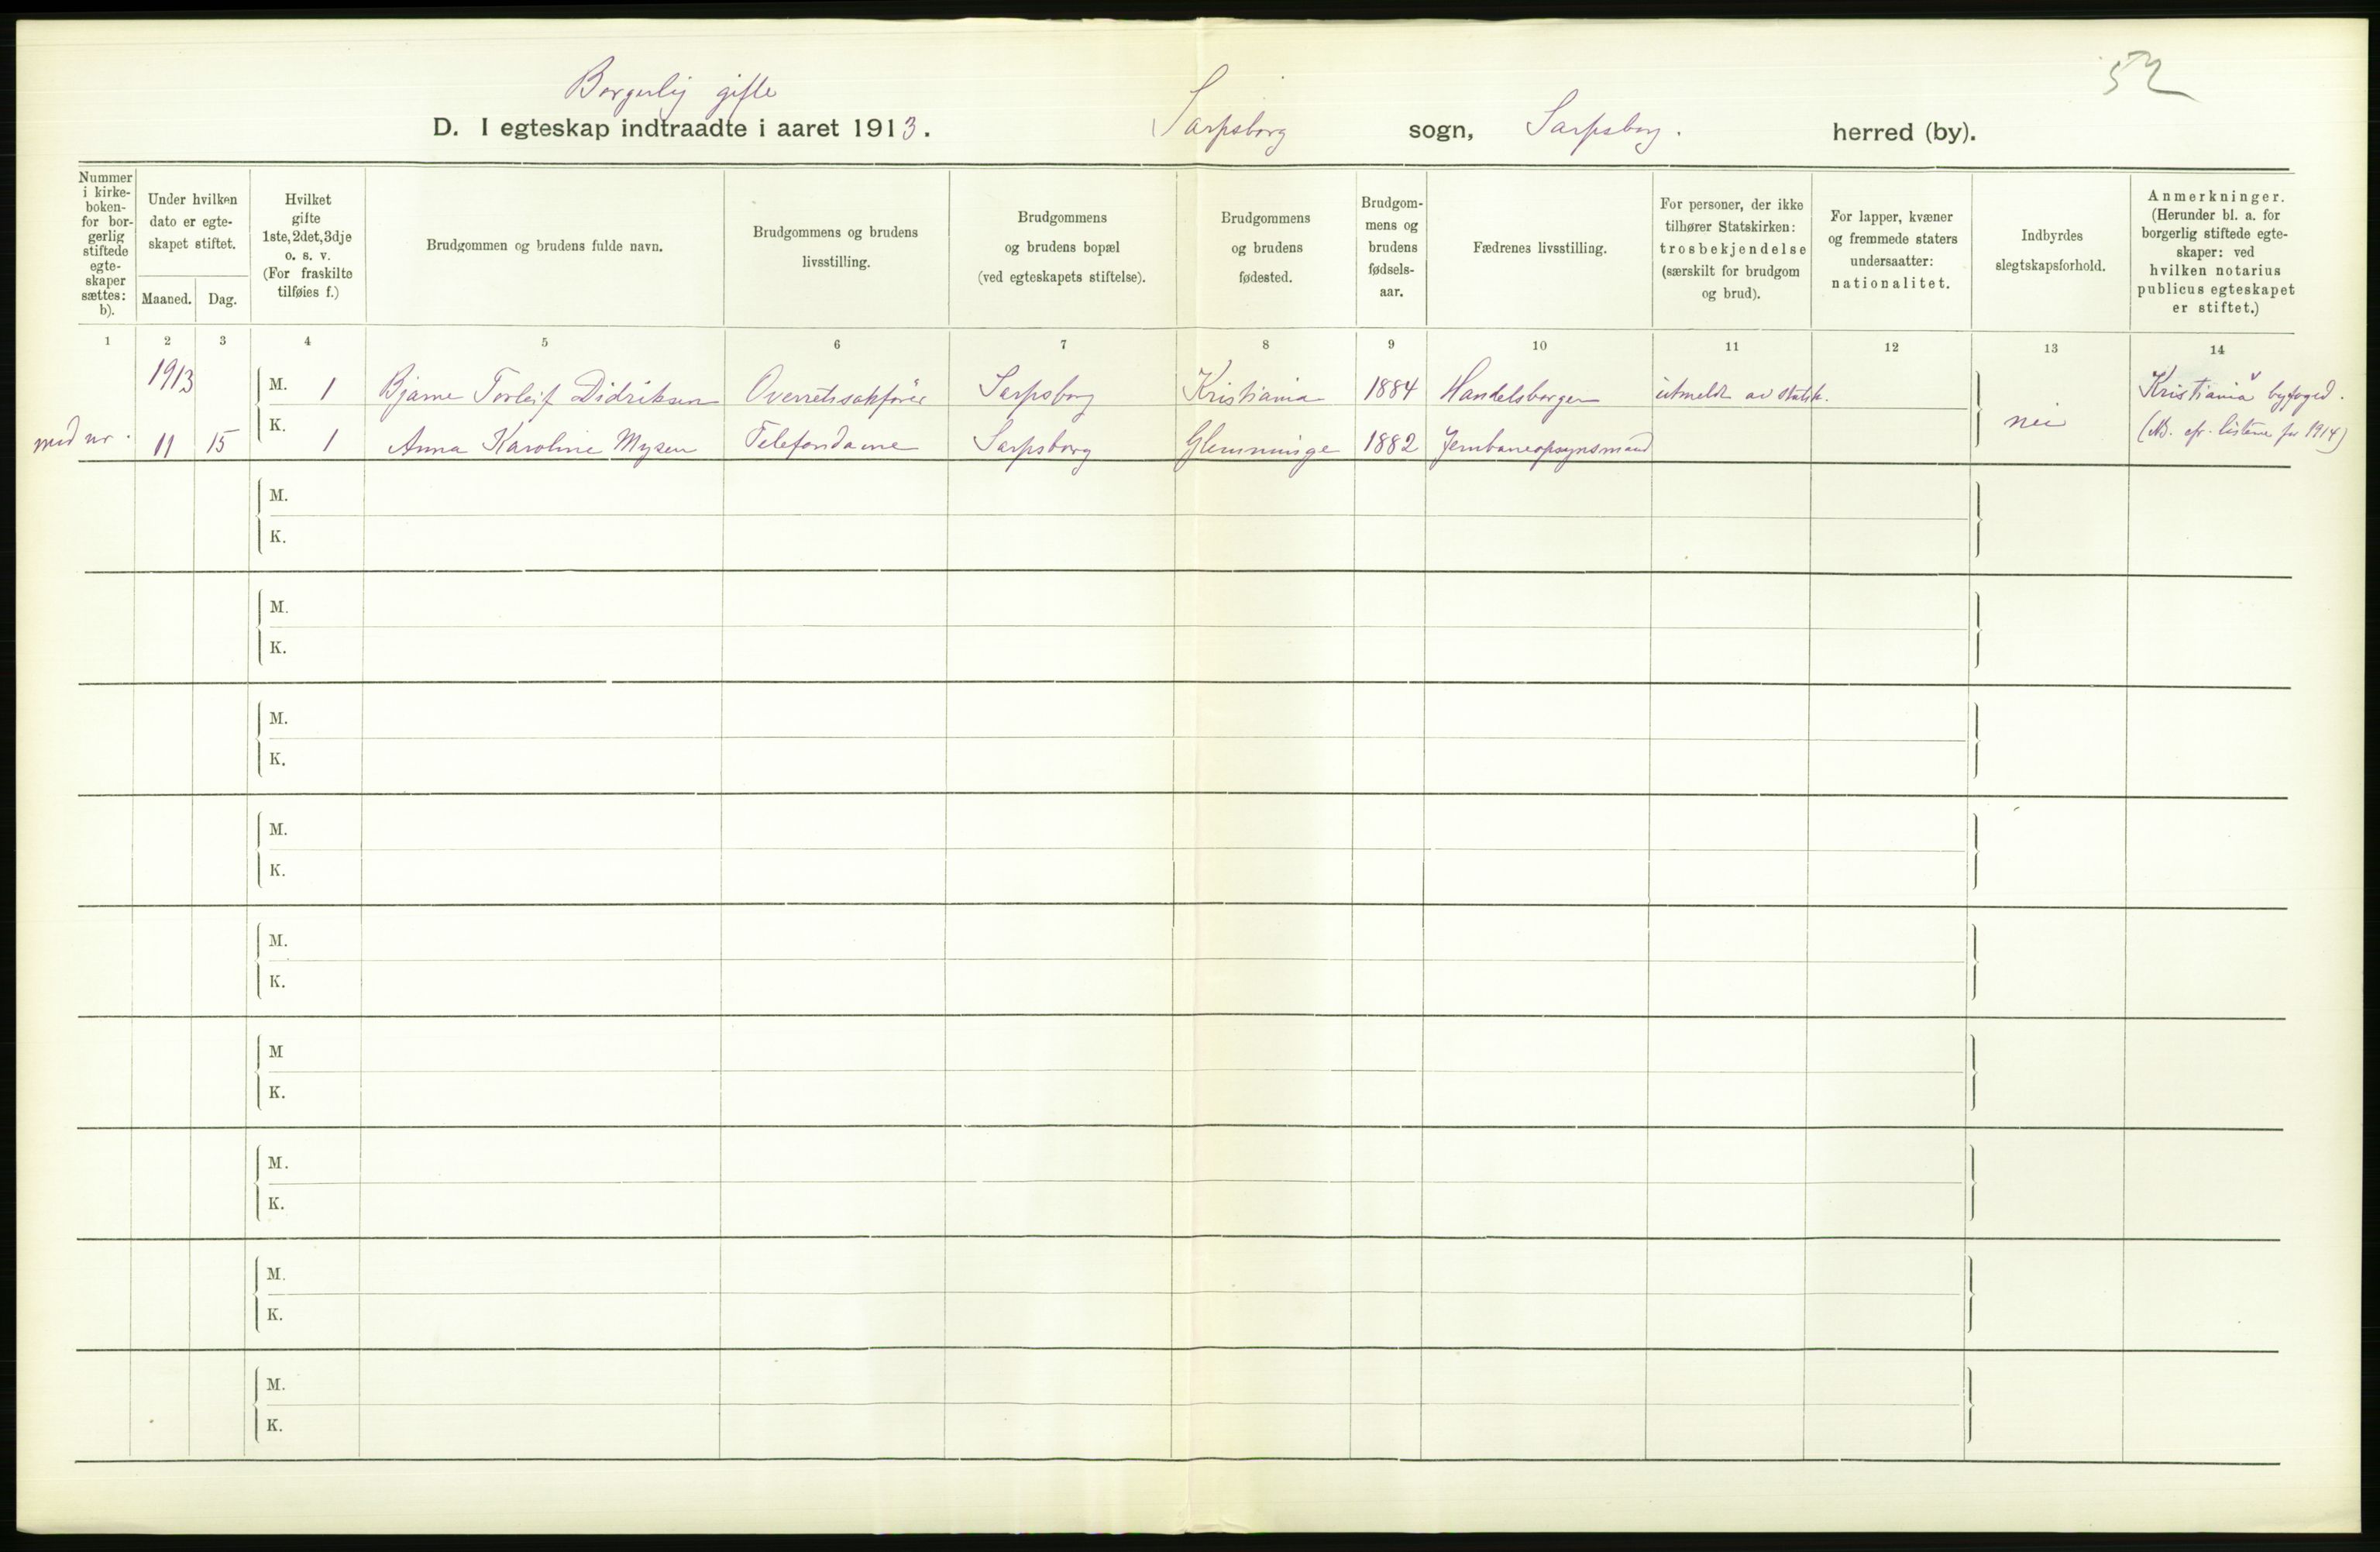 52
Borgerlig gifte
D. I egteskap indtraadte i aaret 1913. Sarpsborg sogn, Sarpsborg. herred (by).
Nummer
i kirke-
boken-
for bor-
gerlig
stiftede
egte-
skaper
sættes:
b).
Under hvilken
dato er egte-
skapet stiftet.
Maaned. Dag.
Hvilket
gifte
1ste, 2det, 3dje
o. s. v.
(For fraskilte
tilføies f.)
Brudgommen og brudens fulde navn.
Brudgommens og brudens
livsstilling.
Brudgommens
og brudens bopæl
(ved egteskapets stiftelse).
Brudgommens
og brudens
fødested.
Brudgom-
mens og
brudens
fødsels-
aar.
Fædrenes livsstilling.
For personer, der ikke
tilhører Statskirken:
trosbekjendelse
(særskilt for brudgom
og brud).
For lapper, kvæner
og fremmede staters
undersaatter:
nationalitet.
Indbyrdes
slegtskapsforhold.
Anmerkninger.
(Herunder bl. a. for
borgerlig stiftede egte-
skaper: ved
hvilken notarius
publicus egteskapet
er stiftet.)
1 2 3 4 5 6 7 8 9 10 11 12 13 14
1913 M. 1 Bjarne Torleif Didriksen Overretssakfører Sarpsborg Kristiania 1884 Handelsborger utmeldt av statsk. Kristiania byfoged.
nei
nr. 11 15 K. 1 Anna Karoline Mysen Telefondame Sarpsborg Glemminge 1882 Jernbaneopsynsmand (NB. cfr. listerne for 1914)
M.
K.
M.
K.
M.
K.
M.
K.
M.
K.
M
K.
M.
K.
M.
K.
M.
K.